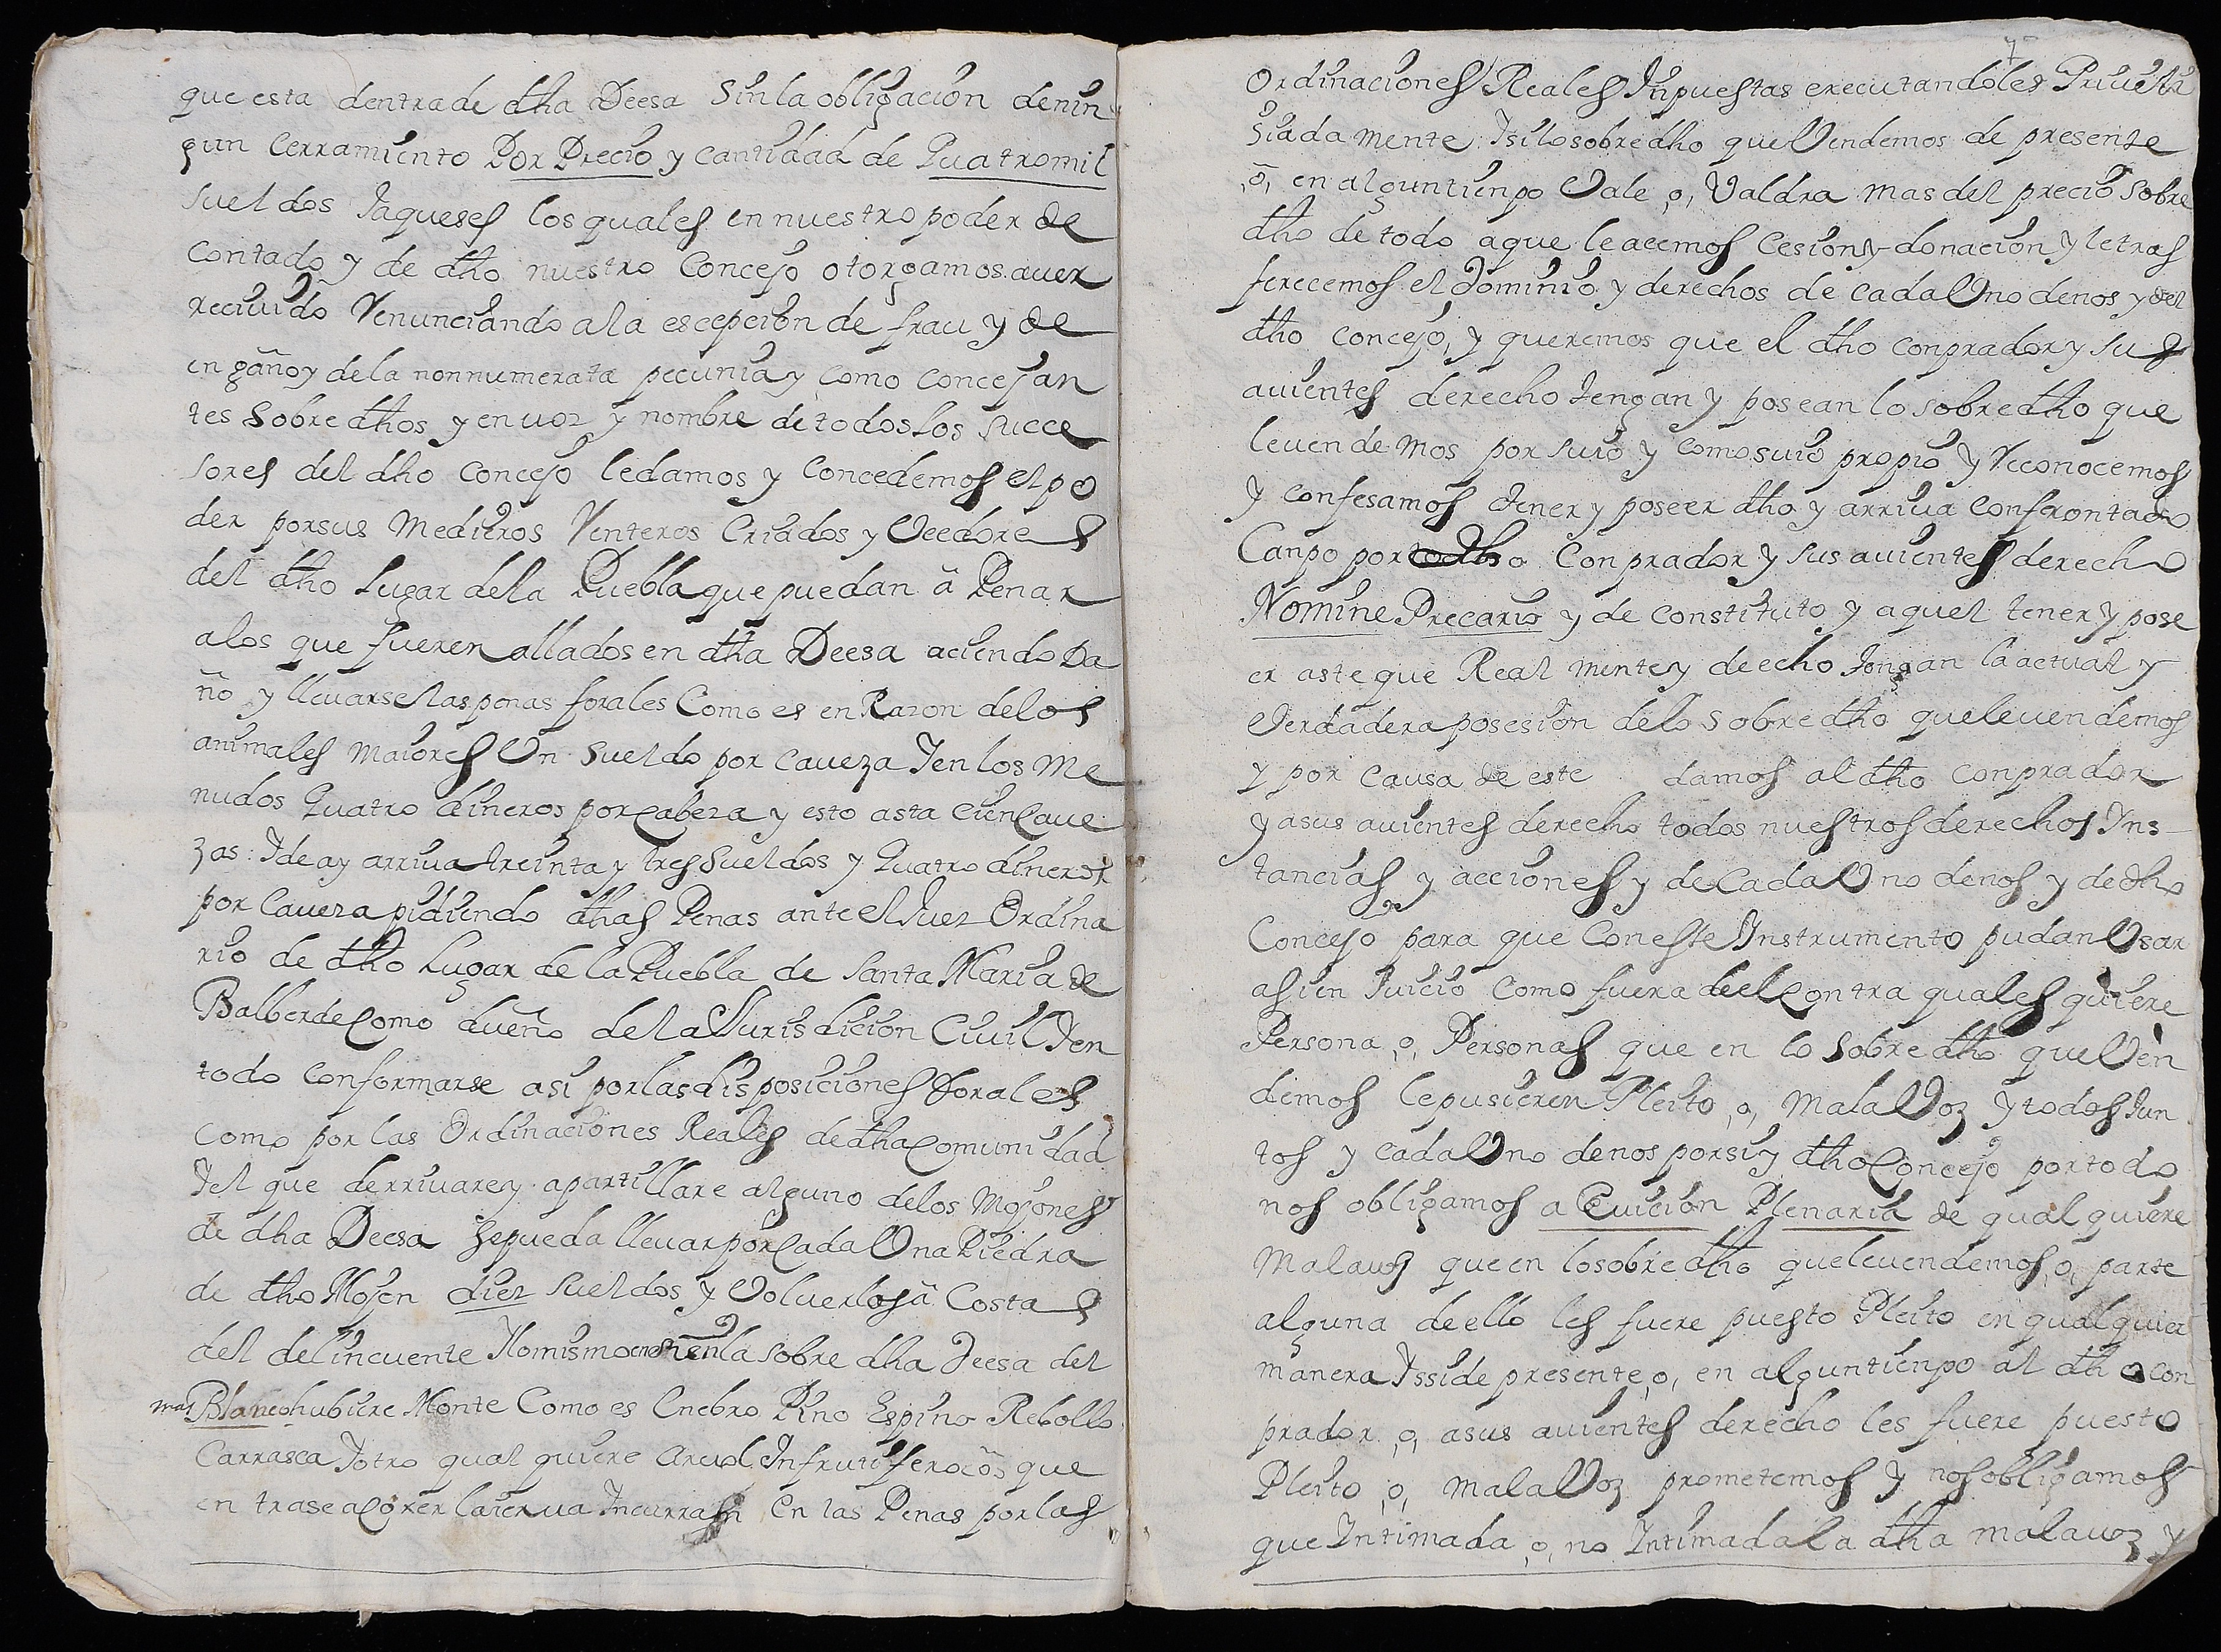 que esta dentra de dha Deesa Sin la obligacion de nin
gun Cerramiento Por Precio y cantidad de Quatro mil
sueldos Jaqueses los quales en nuestro poder de
contado y de dho nuestro Concejo otorgamos aver
recivido Renunciando a la escepcion de frau y de
engaño y de la non numerata pecunia y como concejan
tes sobre dhos y en voz y nombre de todos los succe
sores del dho concejo le damos y concedemos el po
der por sus Medieros Renteros Criados y Veedores
del dho Lugar de la Puebla que puedan â Penar
a los que fueren allados en dha Deesa aciendo Da
ño y llevarse las penas forales Como es en Razon de los
animales maiores Un sueldo por caveza Y en los me
nudos Quatro dineros por Cabeza y esto asta cien Cave
zas: Y de ay arriva treinta y tres sueldos y Quatro dineros
por Caveza pidiendo dhas Penas ante el Juez Ordina
rio de dho Lugar de la Puebla de Santa Maria de
Balberde Como dueño de la Jurisdicion Civil Y en
todo conformarse asi por las disposiciones Forales
como por las Ordinaciones Reales de dha Comunidad
Y el que derrivare y apartillare alguno de los Mojones
de dha Deesa se pueda llevar por Cada Una Piedra
de dho Mojon diez sueldos y volverlos â Costas
del delincuente Y lo mismo en la sobre dha Deesa del
mas Blanco hubiere Monte Como es Enebro Pino Espino Rebollo
Carrasca Y otro qual quiere arvol Infrutifero ô que
entrase a Cojer la ierva Incurran en las Penas por las
Ordinaciones Reales Inpuestas executandoles Privile
giadamente Y si lo sobre dho que Vendemos de presente
,ô, en algun tienpo Vale ,o, Valdra mas del precio sobre
dho de todo aquello acemos Cesion y donacion y le tras
ferecemos el dominio y derechos de cada Uno de nos y del
dho concejo, y queremos que el dho conprador y sus
avientes derecho tengan y posean lo sobre dho que
le vendemos por suio y como suio propio Y Reconocemos
y confesamos tener y poseer dho y arriva confrontado
Canpo por dho Conprador y sus avientes derecho
Nomine Precario y de constituto y aquel tener y pose
er aste que Realmente y de echo tengan la actual y
Verdadera posesion de lo sobre dho que le vendemos
y por causa de este damos al dho conprador
y a sus avientes derecho todos nuestros derechos Ins-
tancias y acciones y de Cada Uno de nos y de dho
Concejo para que Con este Instrumento pudan Usar
asi en Juicio como fuera de el Contra quales quiere
Persona ,o, Personas que en lo sobre dho que Ven
demos le pusieren Pleito ,o, mala Voz Y todos Jun
tos y cada Uno de nos por si y dho Concejo por todo
nos obligamos a Evicion Plenaria de qual quiere
Malavoz que en lo sobre dho que le vendemos ,o, parte
alguna de ello les fuere puesto Pleito en qual quier
manera Y si de presente ,o, en algun tienpo al dho con
prador ,o, a sus avientes derecho les fuere puesto
Pleito ,o, mala Voz prometemos Y nos obligamos
que Intimada ,o, no Intimada la dha malavoz y